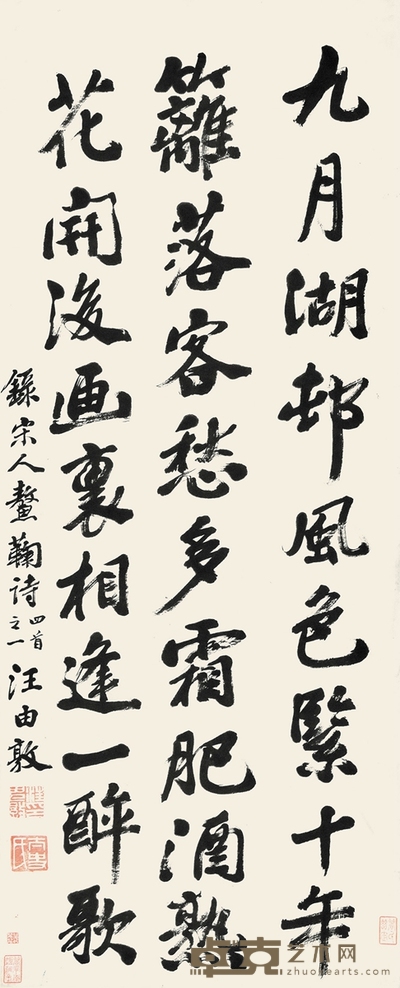 九月湖邨風色緊十年
籬落客愁多霜肥酒熟
花開後画裏相逢一醉歌
錄宋人螯鞠詩四首之一汪由敦
卓克艺术网
zhuokearts.com